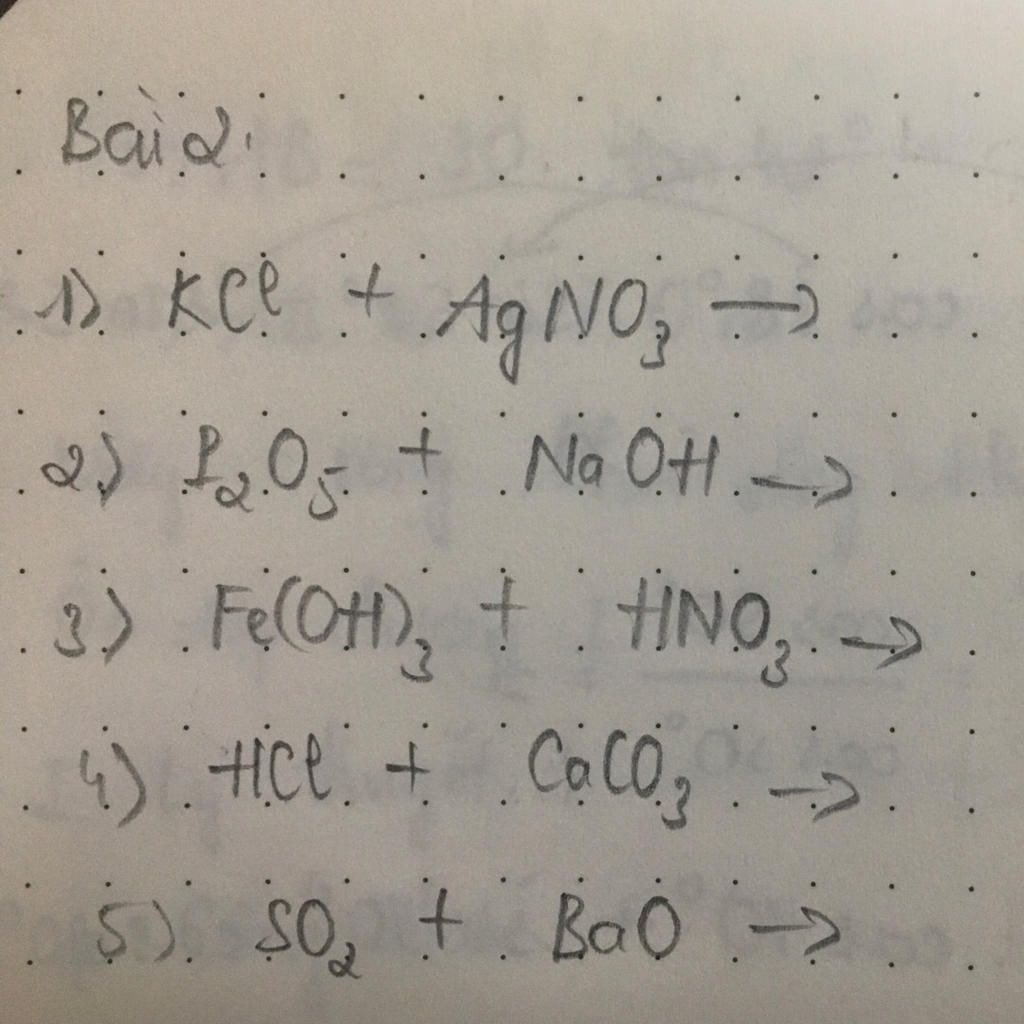 Bài 2.
1) KCl + AgNO₃ →
2) P₂O₅ + NaOH →
3) Fe(OH)₃ + HNO₃ →
4) HCl + CaCO₃ →
5) SO₂ + BaO →